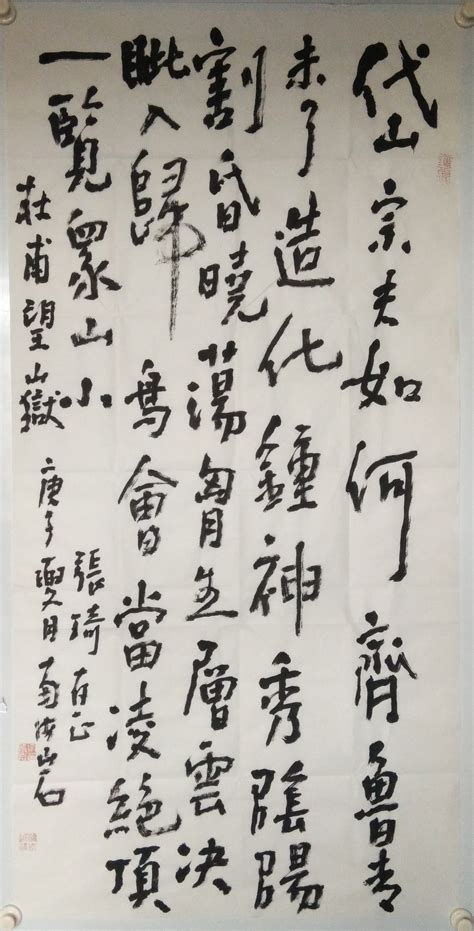 岱宗夫如何齊魯青
未了造化鍾神秀陰陽
割昏曉蕩胸生層雲决
眦入歸鳥會當凌絕頂
一覽眾山小
杜甫望嶽 庚子夏月
張琦